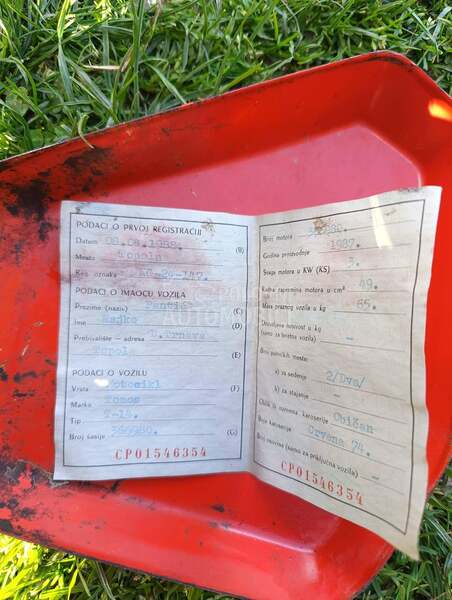 PODACI O PRVOJ REGISTRACIJI
Datum 08.04.1988. (B)
Mesto Topola
Reg. oznaka
PODACI O IMAOCU VOZILA
Prezime (naziv) (C)
Ime Rajko (D)
Prebivalište — adresa
Topola (E)
PODACI O VOZILU
Vrsta Motocikl (F)
Marka Tomos
Tip T-14.
Broj šasije (G)
CP01546354
Broj motora
Godina proizvodnje 1987.
Snaga motora u KW (KS) 3.
Radna zapremina motora u cm³ 49.
Masa praznog vozila u kg 65.
Dozvoljena nosivost u kg
(samo za teretna vozila) —
Broj putničkih mesta:
a) za sedenje 2/Dva/
b) za stajanje —
Oblik ili namena karoserije Običan
Boja karoserije Crvena 74.
Broj osovina (samo za priključna vozila) —
CP01546354